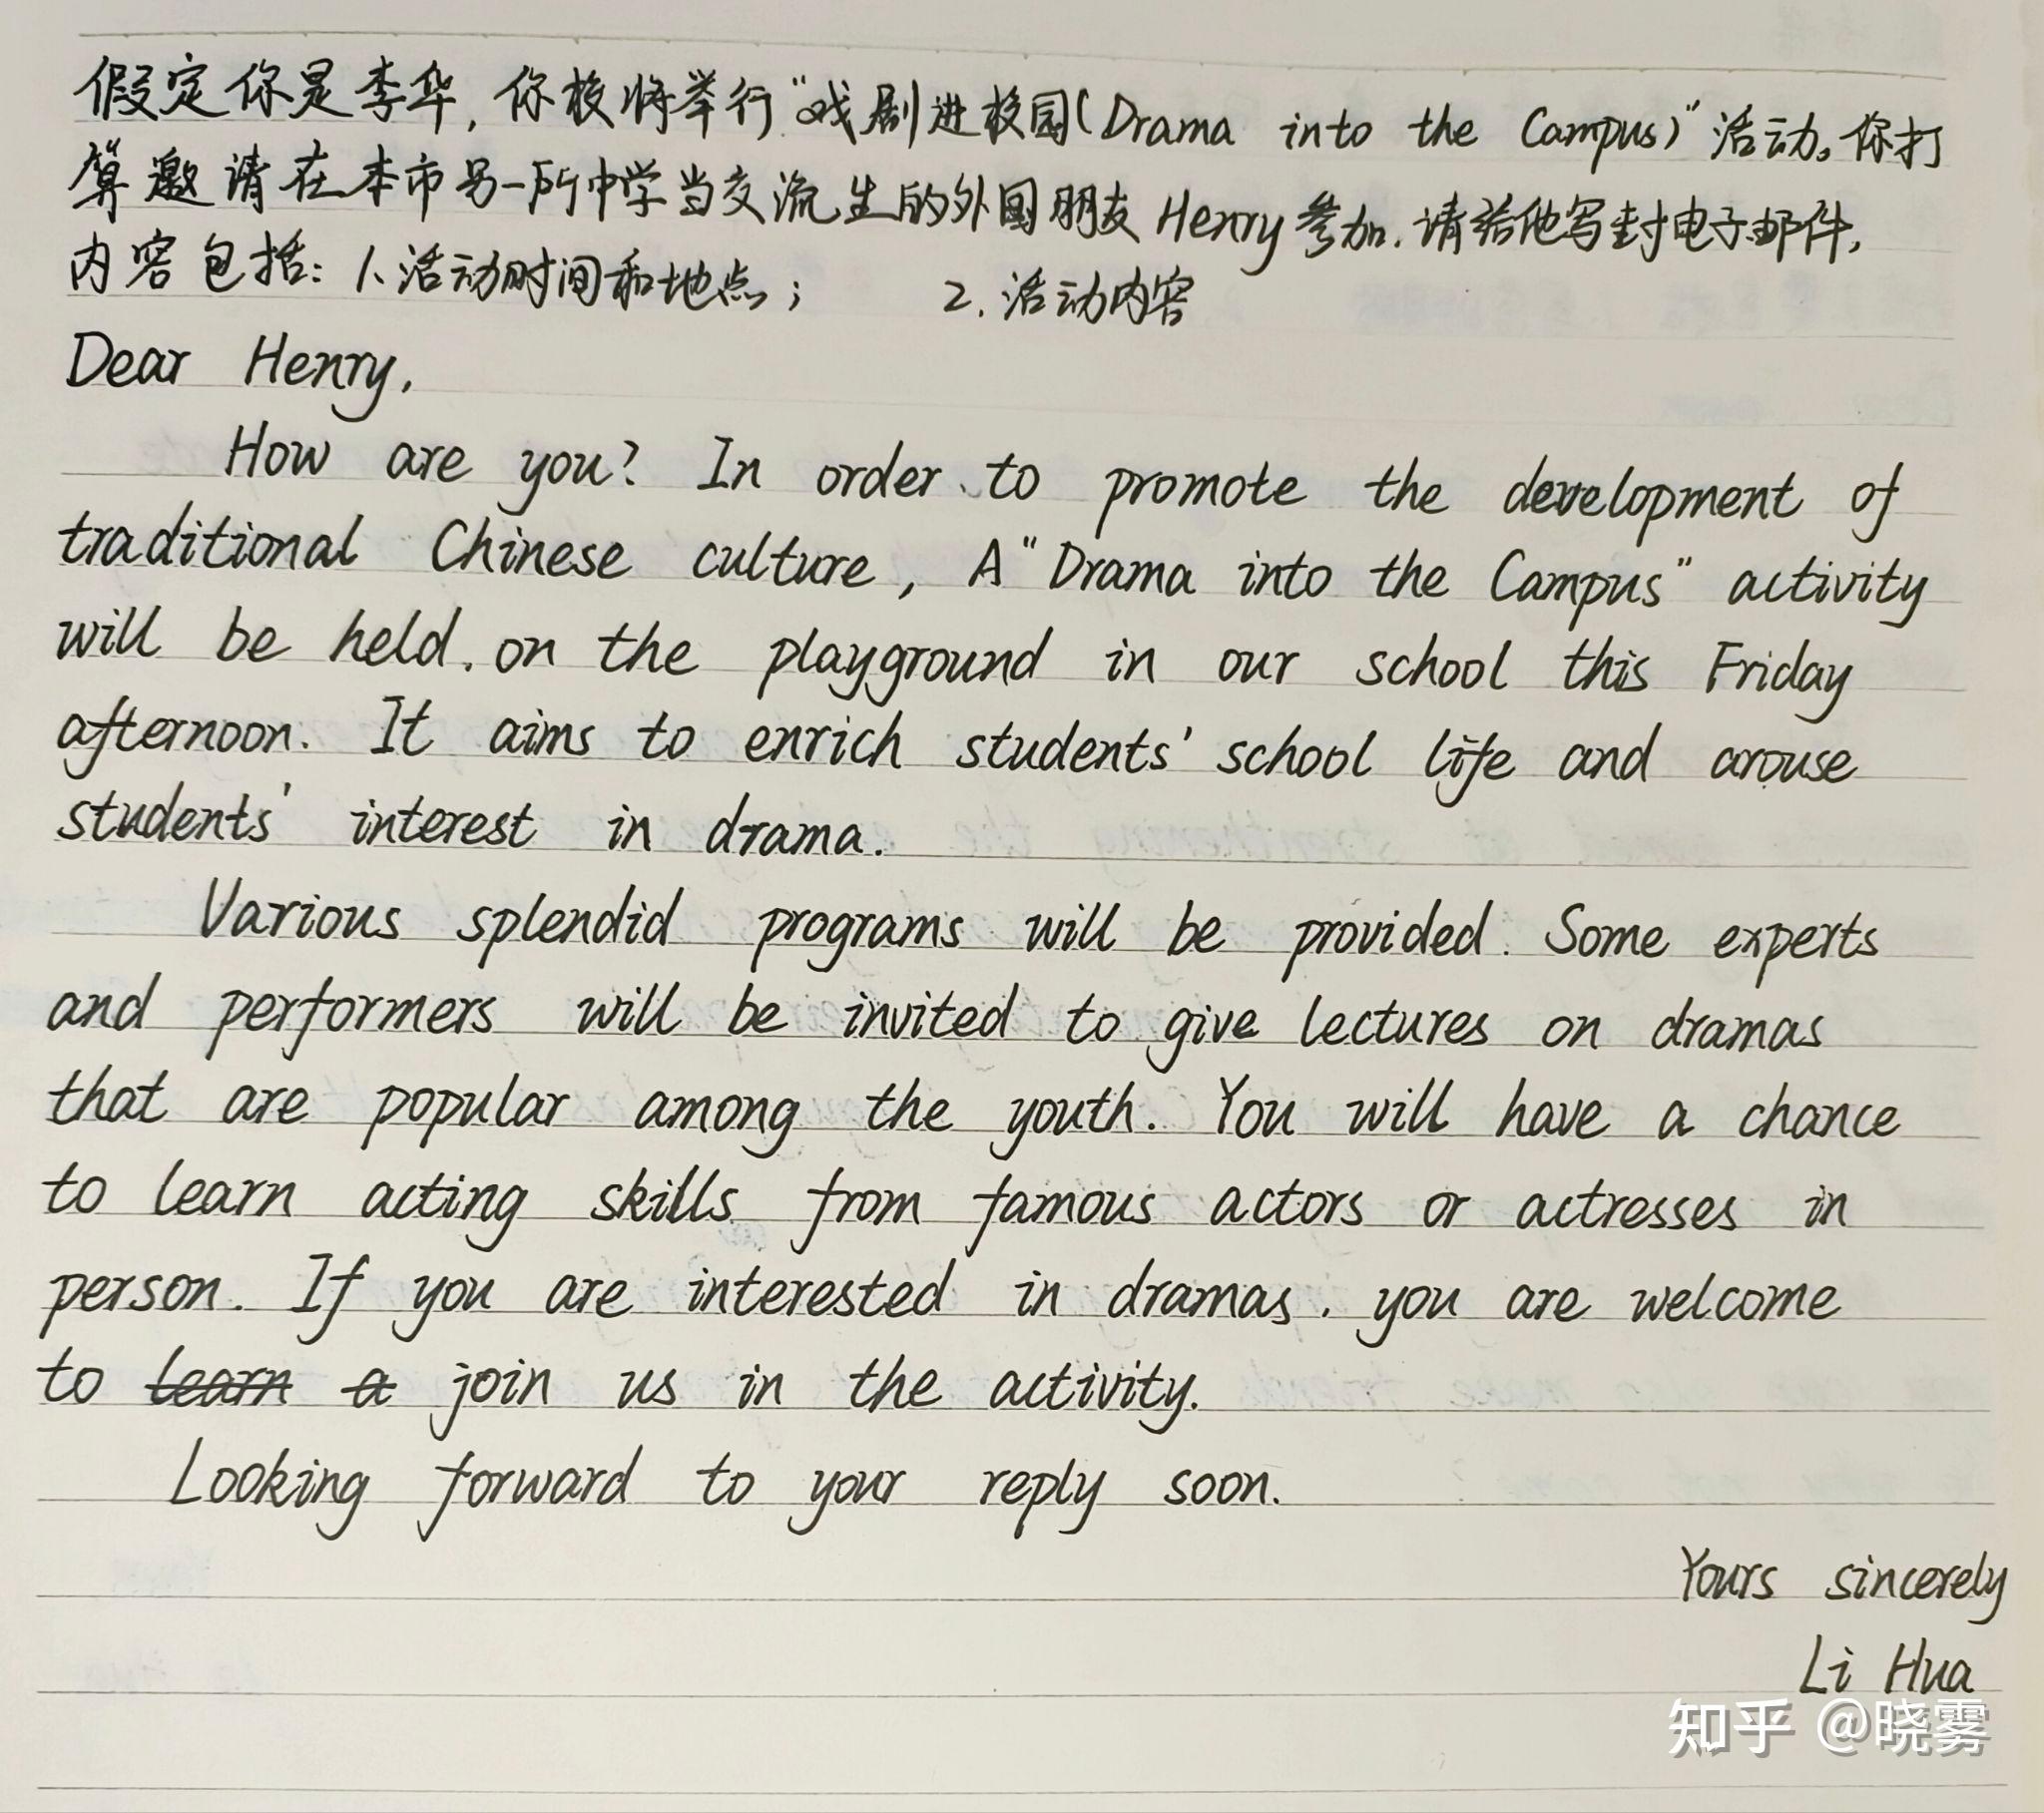 假定你是李华,你校将举行“戏剧进校园(Drama into the Campus)”活动。你打
算邀请在本市另一所中学当交流生的外国朋友Henry参加.请给他写封电子邮件,
内容包括: 1、活动时间和地点; 2.活动内容
Dear Henry,
How are you? In order to promote the development of
traditional Chinese culture, A “Drama into the Campus” activity
will be held. on the playground in our school this Friday
afternoon. It aims to enrich students' school life and arouse
students' interest in drama.
Various splendid programs will be provided. Some experts
and performers will be invited to give lectures on dramas
that are popular among the youth. You will have a chance
to learn acting skills from famous actors or actresses in
person. If you are interested in dramas. you are welcome
to learn a join us in the activity.
Looking forward to your reply soon.
Yours sincerely
Li Hua
知乎 @晓雾